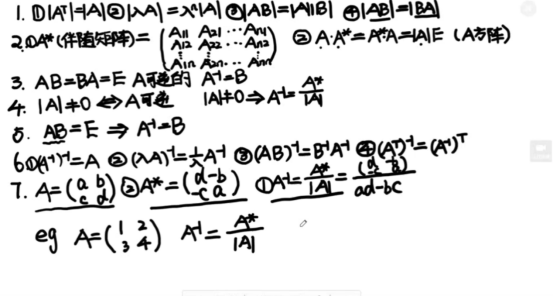 1. ①|Aᵀ|=|A| ②|λA|=λⁿ|A| ③|AB|=|A||B| ④|AB|=|BA|
2. ①A*(伴随矩阵)=(A₁₁ A₂₁ ⋯ Aₙ₁ A₁₂ A₂₂ ⋯ Aₙ₂ ⋮ ⋮ ⋮ A₁ₙ A₂ₙ ⋯ Aₙₙ) ②A·A*=A*A=|A|E (A方阵)
3. AB=BA=E A可逆的 A⁻¹=B
4. |A|≠0 ⇔ A可逆 |A|≠0 ⇒ A⁻¹=A*/|A|
5. AB=E ⇒ A⁻¹=B
6 ①(A⁻¹)⁻¹=A ②(λA)⁻¹=1/λ A⁻¹ ③(AB)⁻¹=B⁻¹A⁻¹ ④(Aᵀ)⁻¹=(A⁻¹)ᵀ
7. A=(a b c d) ②A*=(d -b -c a) ①A⁻¹=A*/|A|=(d -b -c a)/ad-bc
eg A=(1 2 3 4) A⁻¹=A*/|A|